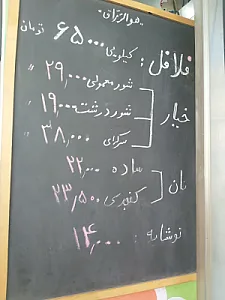 هوالرزاق
فلافل: کیلویی ۶۵۰۰۰ تومان
خیار
شور معمولی ۲۹,۰۰۰ "
شور درشت ۱۹,۰۰۰ "
۳۸,۰۰۰ "
نان
ساده ۲۲,۰۰۰
کنجدی ۲۳,۵۰۰
نوشابه: ۱۴,۰۰۰